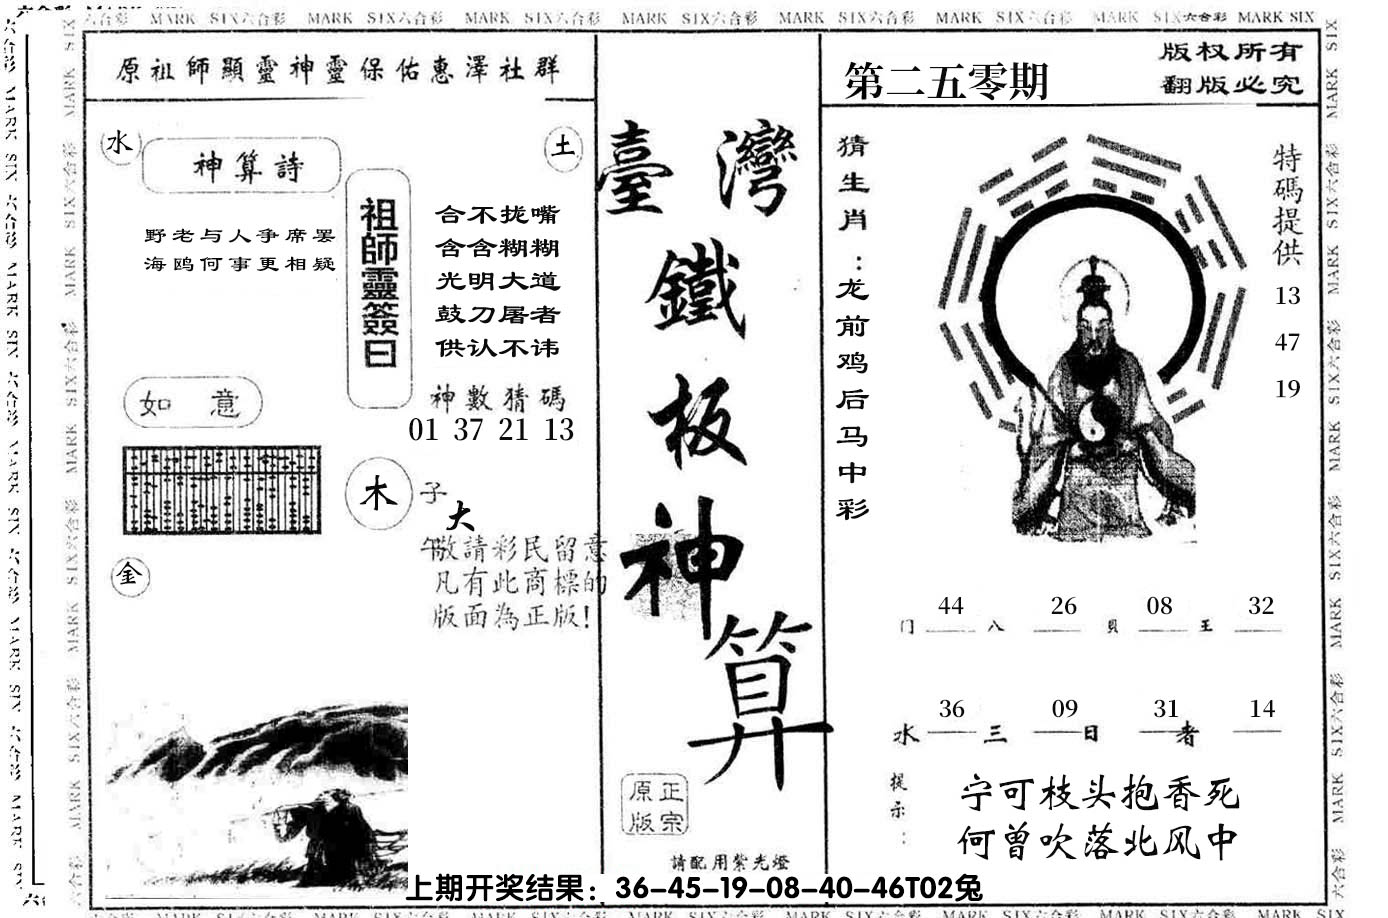 MARK SIX六合彩 MARK SIX六合彩 MARK SIX六合彩 MARK SIX六合彩 MARK SIX六合彩 MARK SIX六合彩 MARK SIX六合彩 MARK SIX
原祖師顯靈神靈保佑惠澤社群
水
神算詩
土
野老与人争席罢
海鸥何事更相疑
祖師靈簽曰
合不拢嘴
含含糊糊
光明大道
鼓刀屠者
供认不讳
神數猜碼
01 37 21 13
如意
木
子
大
午
敬請彩民留意
凡有此商標的
版面為正版!
金
臺灣
鐵
板
神
算
原正
版宗
請配用紫光燈
第二五零期
版权所有
翻版必究
猜生肖:龙前鸡后马中彩
特碼提供
13
47
19
44 26 08 32
门 八 贝 王
36 09 31 14
水 三 日 者
提示:
宁可枝头抱香死
何曾吹落北风中
上期开奖结果：36-45-19-08-40-46T02兔